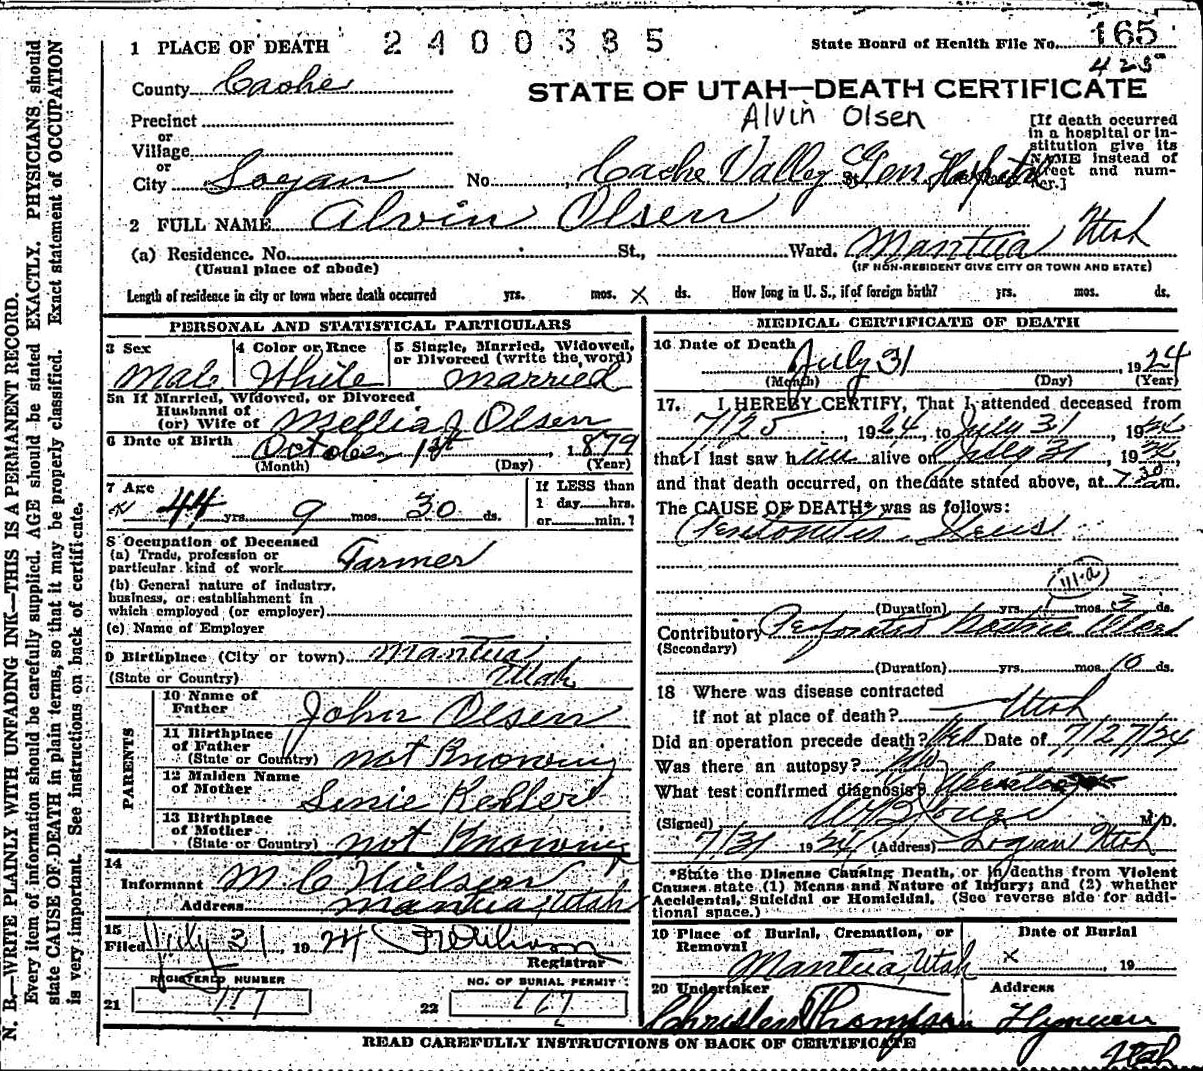 1 PLACE OF DEATH 2400385 State Board of Health File No. 165
423
County Cache STATE OF UTAH—DEATH CERTIFICATE
Precinct Alvin Olsen [If death occurred
or in a hospital or in-
Village stitution give its
or NAME instead of
City Logan No. Cache Valley Gen Hospital St. street and num-
ber.]
2 FULL NAME Alvin Olsen
(a) Residence. No. St., Ward. Mantua Utah
(Usual place of abode) (IF NON-RESIDENT GIVE CITY OR TOWN AND STATE)
Length of residence in city or town where death occurred yrs. mos. X ds. How long in U. S., if of foreign birth? yrs. mos. ds.
PERSONAL AND STATISTICAL PARTICULARS
3 Sex 4 Color or Race 5 Single, Married, Widowed,
or Divorced (write the word)
Male White Married
5a If Married, Widowed, or Divorced
Husband of
(or) Wife of Mellia J Olsen
6 Date of Birth October 1st, 1879
(Month) (Day) (Year)
7 Age If LESS than
44 yrs. 9 mos. 30 ds. 1 day hrs.
or min.?
8 Occupation of Deceased
(a) Trade, profession or
particular kind of work Farmer
(b) General nature of industry,
business, or establishment in
which employed (or employer)
(c) Name of Employer
9 Birthplace (City or town) Mantua
(State or Country) Utah
PARENTS
10 Name of
Father John Olsen
11 Birthplace
of Father
(State or Country) not Knowing
12 Maiden Name
of Mother Sinie
13 Birthplace
of Mother
(State or Country) not Knowing
14
Informant M C Nielsen
Address Mantua, Utah
15
Filed July 31, 1924
Registrar
REGISTERED NUMBER NO. OF BURIAL PERMIT
21 117 22 117
MEDICAL CERTIFICATE OF DEATH
16 Date of Death
July 31, 1924
(Month) (Day) (Year)
17. I HEREBY CERTIFY, That I attended deceased from
7/25, 1924, to July 31, 1924,
that I last saw him alive on July 31, 1924,
and that death occurred, on the date stated above, at 7 30 am.
The CAUSE OF DEATH* was as follows:
Peritonitis Ileus
111-a
(Duration) yrs. mos. 3 ds.
Contributory Perforated Gastric Ulcer
(Secondary)
(Duration) yrs. mos. 10 ds.
18 Where was disease contracted
if not at place of death? Utah
Did an operation precede death? Yes Date of 7/27/24
Was there an autopsy? No
What test confirmed diagnosis?
(Signed) M. D.
7/31 1924 (Address) Logan Utah
*State the Disease Causing Death, or in deaths from Violent
Causes state (1) Means and Nature of Injury; and (2) whether
Accidental, Suicidal or Homicidal. (See reverse side for addi-
tional space.)
19 Place of Burial, Cremation, or Date of Burial
Removal
Mantua, Utah X, 19
20 Undertaker Address
Thompson
Utah
READ CAREFULLY INSTRUCTIONS ON BACK OF CERTIFICATE
N. B.—WRITE PLAINLY WITH UNFADING INK—THIS IS A PERMANENT RECORD.
Every item of information should be carefully supplied. AGE should be stated EXACTLY. PHYSICIANS should
state CAUSE OF DEATH in plain terms, so that it may be properly classified. Exact statement of OCCUPATION
is very important. See instructions on back of certificate.